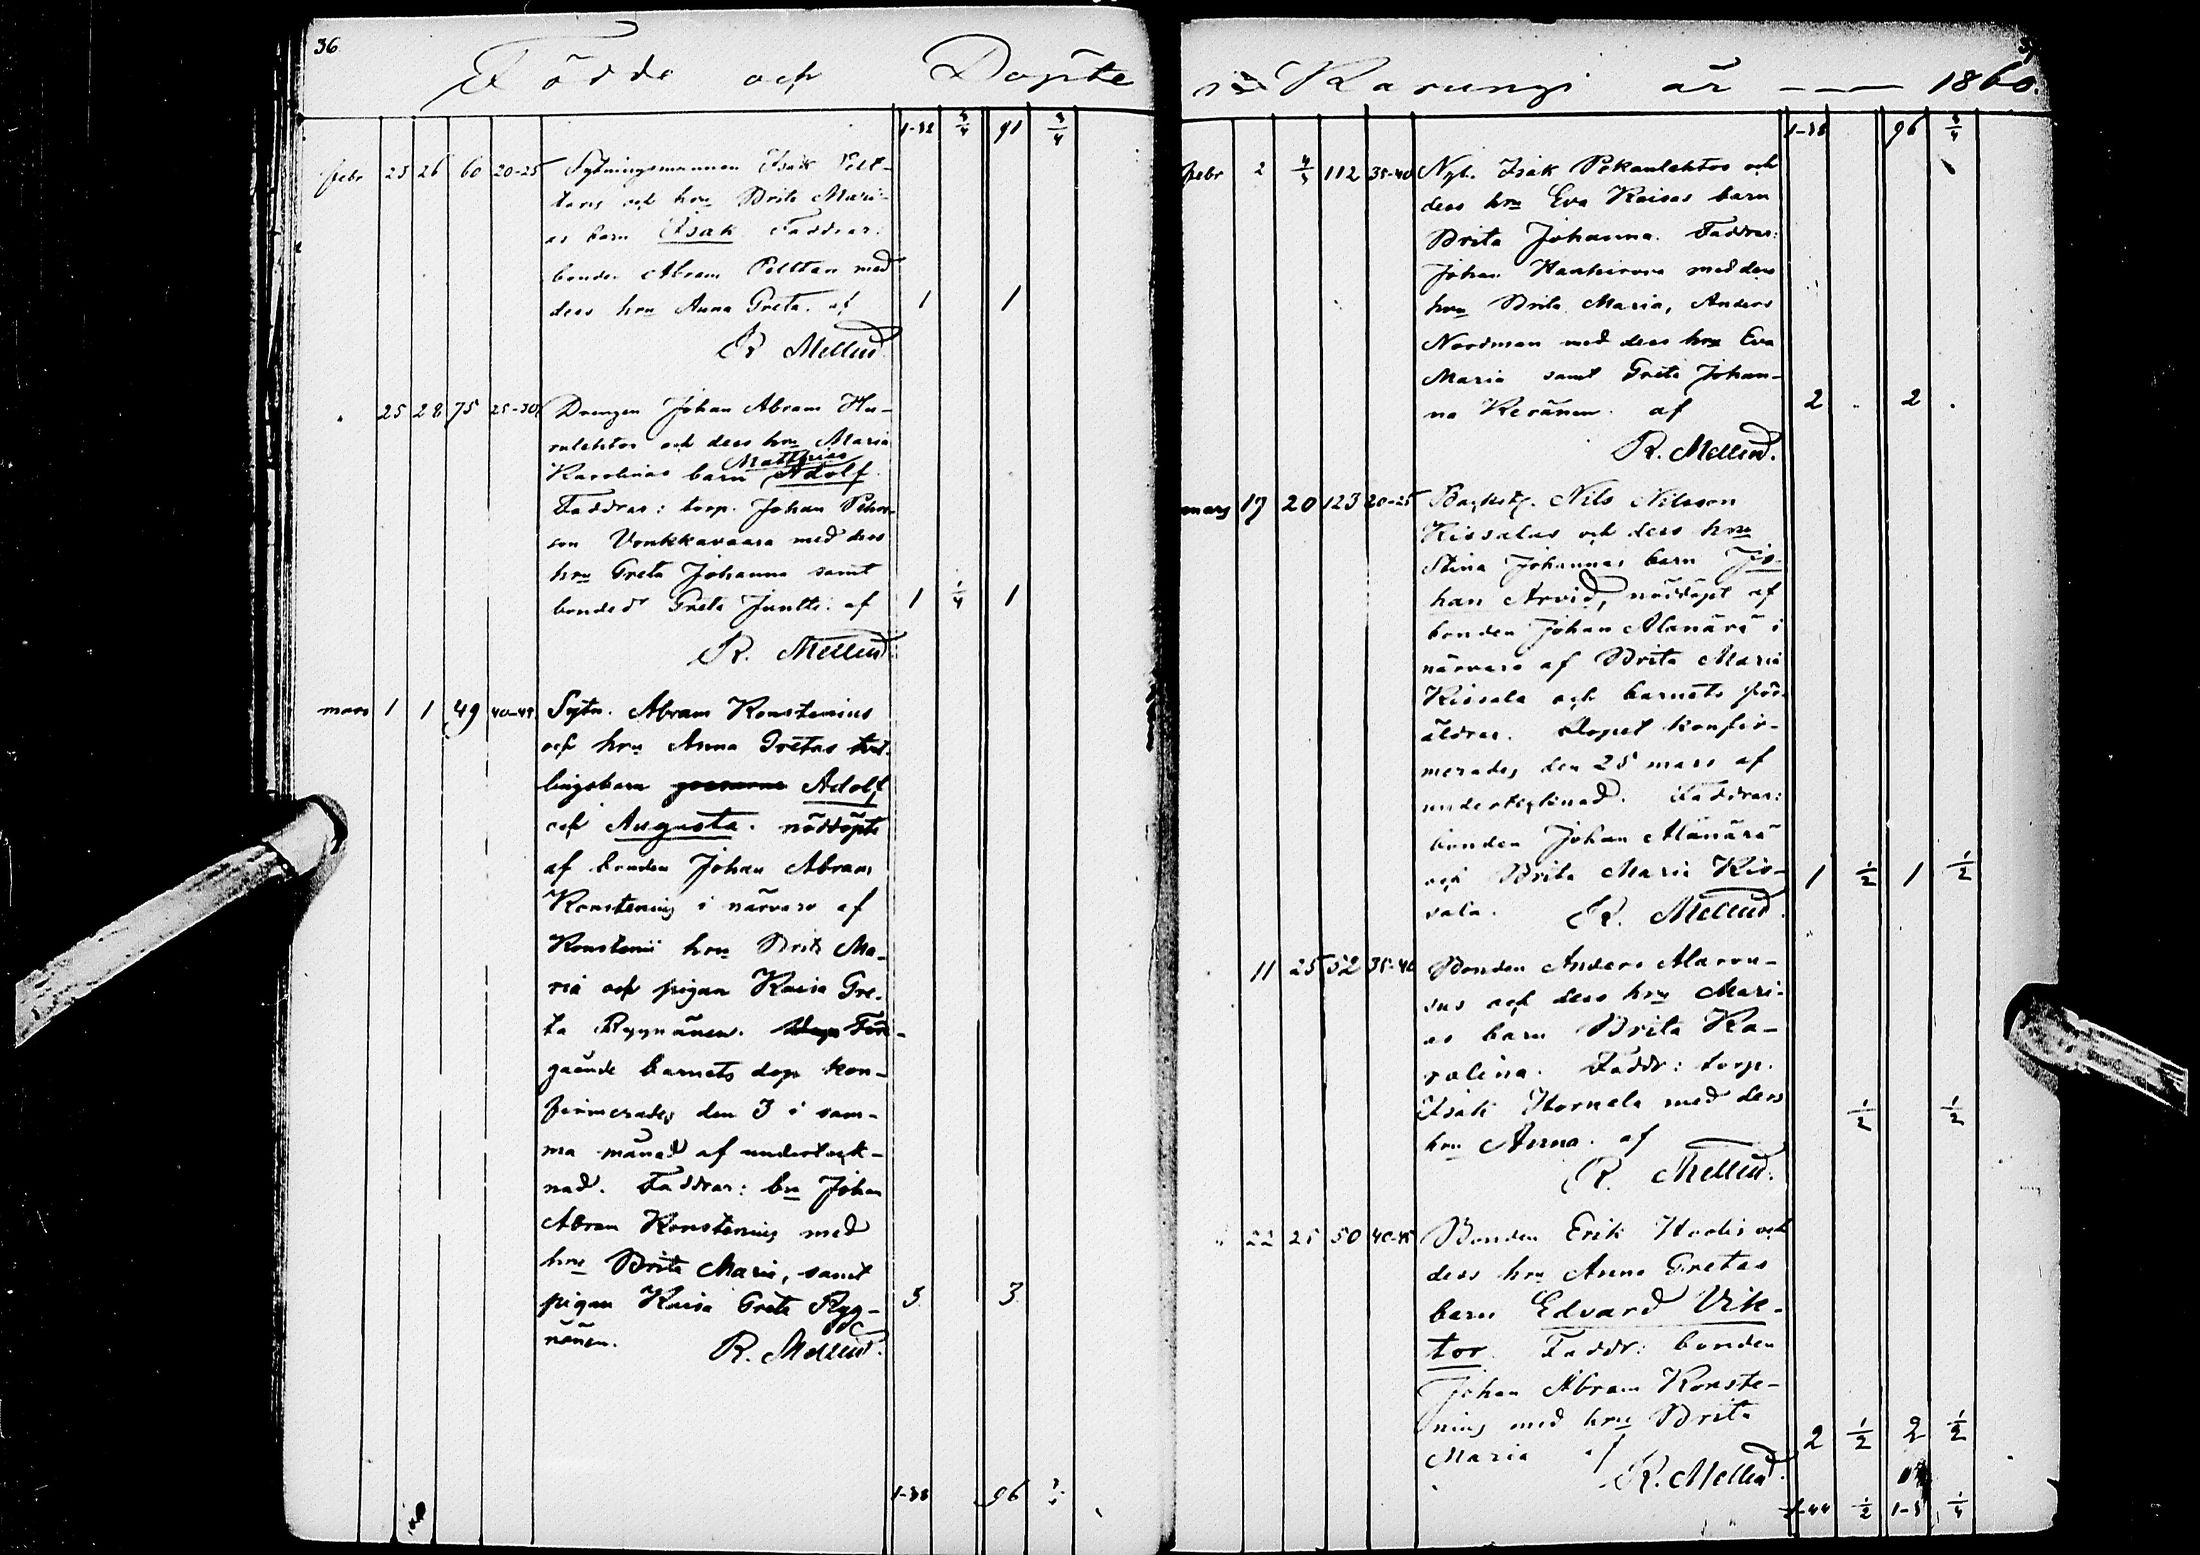 36
Födde och Döpte
1-32 3/4 91 3/4
febr 25 26 60 20-25 Sytningsmannen Isak Pelt-
taris och hru Brita Mari-
as barn Isak. Faddrar:
bonden Abram Pelttari med
dess hru Anna Greta. af 1 1
R Mellud
25 28 75 25-30 Drengen Johan Abram Hu-
rulehtos och dess hru Maria
Matthias
Karolinas barn Adolf.
Faddrar: torp. Johan Pehrs-
son Vonkkavaara med dess
hru Greta Johanna samt
bonded Greta Juntti. af 1 1/4 1
R. Mellud
mars 1 1 49 40-49 Sytn. Abram Konstenius
och hru Anna Gretas tvil-
lingsbarn Adolf
och Augusta. nöddöpte
af bonden Johan Abram
Konstenius i närvaro af
Konstenii hru Brita Ma-
ria och pigan Kaisa Gre-
ta Ryynänen. För-
gående barnets dop kon-
firmerades den 3 i sam-
ma månad af underteck-
nad. Faddrar: bn Johan
Abram Konstenius med
hru Brita Maria, samt
pigan Kaisa Greta Ryy- 3 3
nänen. R. Mellud.
1-38 96 3/4
i Karungi år — — 1860.
1-38 96 3/4
febr 2 4/3 112 35-40 Nyb. Isak Pekanlehtos och
dess hru Eva Kaisas barn
Brita Johanna. Faddrar:
Johan Haapivaara med dess
hru Brita Maria, Anders
Nordman med dess hru Eva
Maria samt Greta Johan-
na Keränen. af 2 2
R. Mellud.
mars 17 20 123 20-25 Backstg. Nils Nilsson
Kissalas och dess hru
Stina Johannas barn Jo-
han Arvid, nöddöpt af
bonden Johan Alanärä i
närvaro af Brita Maria
Kissala och barnets för-
äldrar. Dopet konfir-
merades den 25 mars af
undertecknad. Faddrar:
bonden Johan Alanärä
och Brita Maria Kis- 1 1/2 1 1/2
sala. R. Mellud.
11 25 52 35-40 Bonden Anders Alarou-
sus och dess hru Mari-
as barn Brita Ka-
rolina. Faddr: torp.
Isak Hornela med dess 1/2 1/2
hru Anna. af
R. Mellud.
" 22 25 50 40-45 Bonden Erik Hoolis och
dess hru Anna Gretas
barn Edvard Vik-
tor. Faddr: bonden
Johan Abram Konste-
nius med hru Brita 2 1/2 2 1/2
Maria af
R. Mellud.
1-44 1/2 1-5 1/4